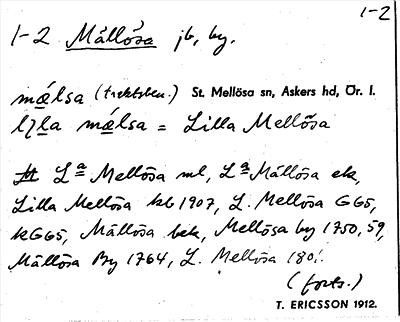 1-2
1-2 Mällösa jb, by.
mälsa (traktsben.) St. Mellösa sn, Askers hd, Ör. l.
lịla mälsa = Lilla Mellösa
Lª Mellösa ml, Lª Mällösa ek,
Lilla Mellösa kb 1907, L. Mellösa G65,
kG65, Mällösa bek, Mellösa by 1750, 59,
Mällösa By 1764, L. Mellösa 180.
(forts.)
T. ERICSSON 1912.